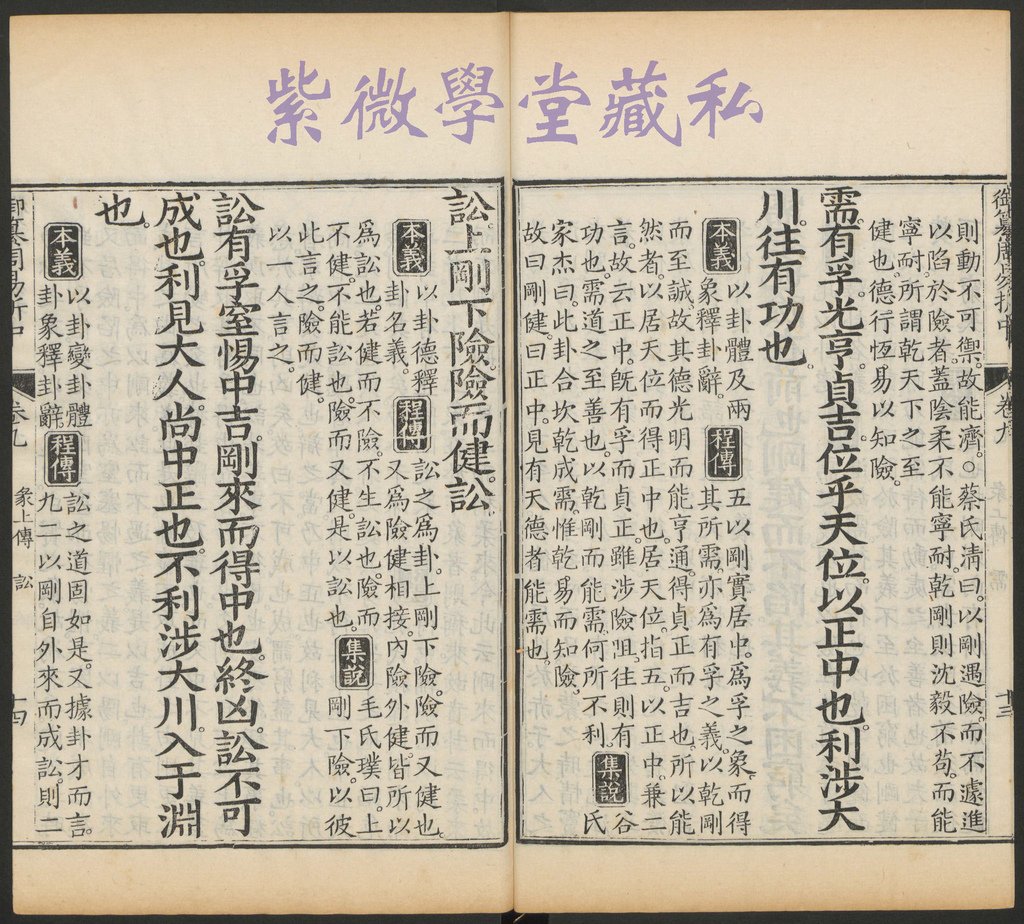 紫微學堂藏私
御纂周易折中 卷九 彖上傳 需 十三
則動不可禦。故能濟。○蔡氏淸曰。以剛遇險。而不遽進。
以陷於險者。蓋陰柔不能寧耐。乾剛則沈毅不苟。而能
寧耐。所謂乾天下之至
健也。德行恆易以知險。
需。有孚。光亨。貞吉。位乎天位。以正中也。利涉大
川。往有功也。
本義
以卦體及兩
象釋卦辭。
程傳
五以剛實居中。爲孚之象。而得
其所需。亦爲有孚之義。以乾剛
而至誠。故其德光明而能亨通。得貞正而吉也。所以能
然者。以居天位而得正中也。居天位。指五。以正中。兼二
言。故云正中。旣有孚而貞正。雖涉險阻。往則有
功也。需道之至善也。以乾剛而能需。何所不利。
集說
谷
氏
家杰曰。此卦合坎乾成需。惟乾易而知險。
故曰剛健。曰正中。見有天德者能需也。
訟。上剛下險。險而健。訟。
本義
以卦德釋
卦名義。
程傳
訟之爲卦。上剛下險。險而又健也。
又爲險健相接。內險外健。皆所以
爲訟也。若健而不險。不生訟也。險而
不健。不能訟也。險而又健。是以訟也。
集說
毛氏璞曰。上
剛下險。以彼
此言之。險而健。
以一人言之。
訟有孚窒惕中吉。剛來而得中也。終凶。訟不可
成也。利見大人。尚中正也。不利涉大川。入于淵
也。
本義
以卦變卦體
卦象釋卦辭。
程傳
訟之道固如是。又據卦才而言。
九二以剛自外來而成訟。則二
御纂周易折中 卷九 彖上傳 訟 十四